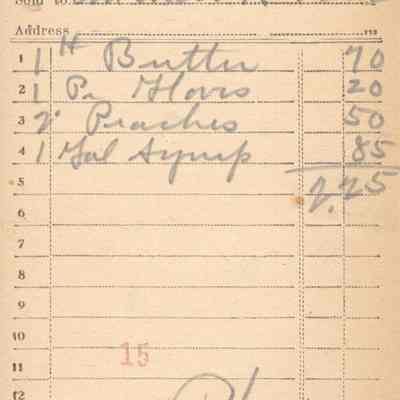 Sold to
Address
1 1 # Butter 70
2 1 Pr Glovs 20
3 2 Peaches 50
4 1 Gal Syrup 85
5 2.25
6
7
8
9
10
15
11
12